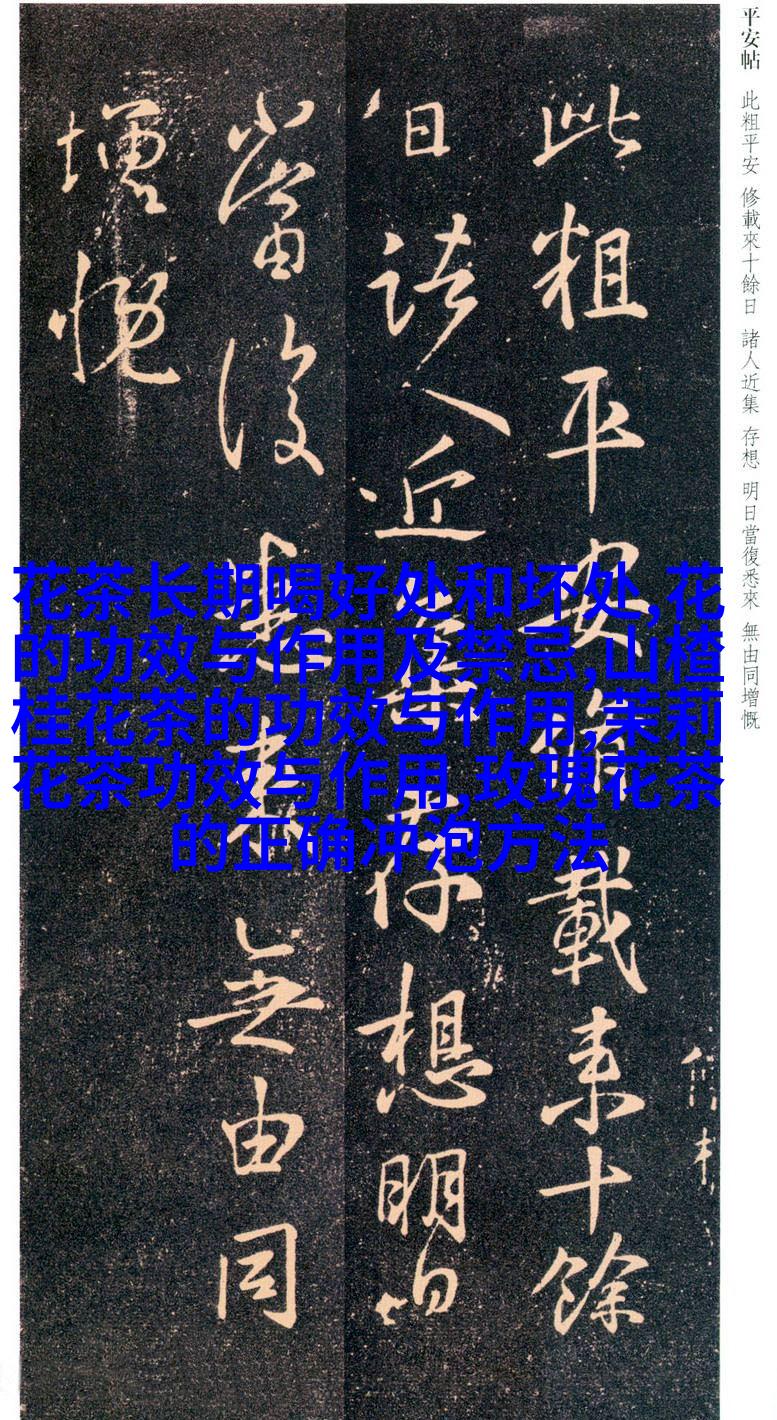 平安帖 此粗平安 修載來十餘日 諸人近集 存想 明日當復悉來 無由同增慨
此粗平安脩載来十餘
日諸人近集存想明日
當復悉來無由同
增慨
花茶长期喝好处和坏处,花
的功效与作用及禁忌,山楂
桂花茶的功效与作用,茉莉
花茶功效与作用,玫瑰花茶
的正确冲泡方法